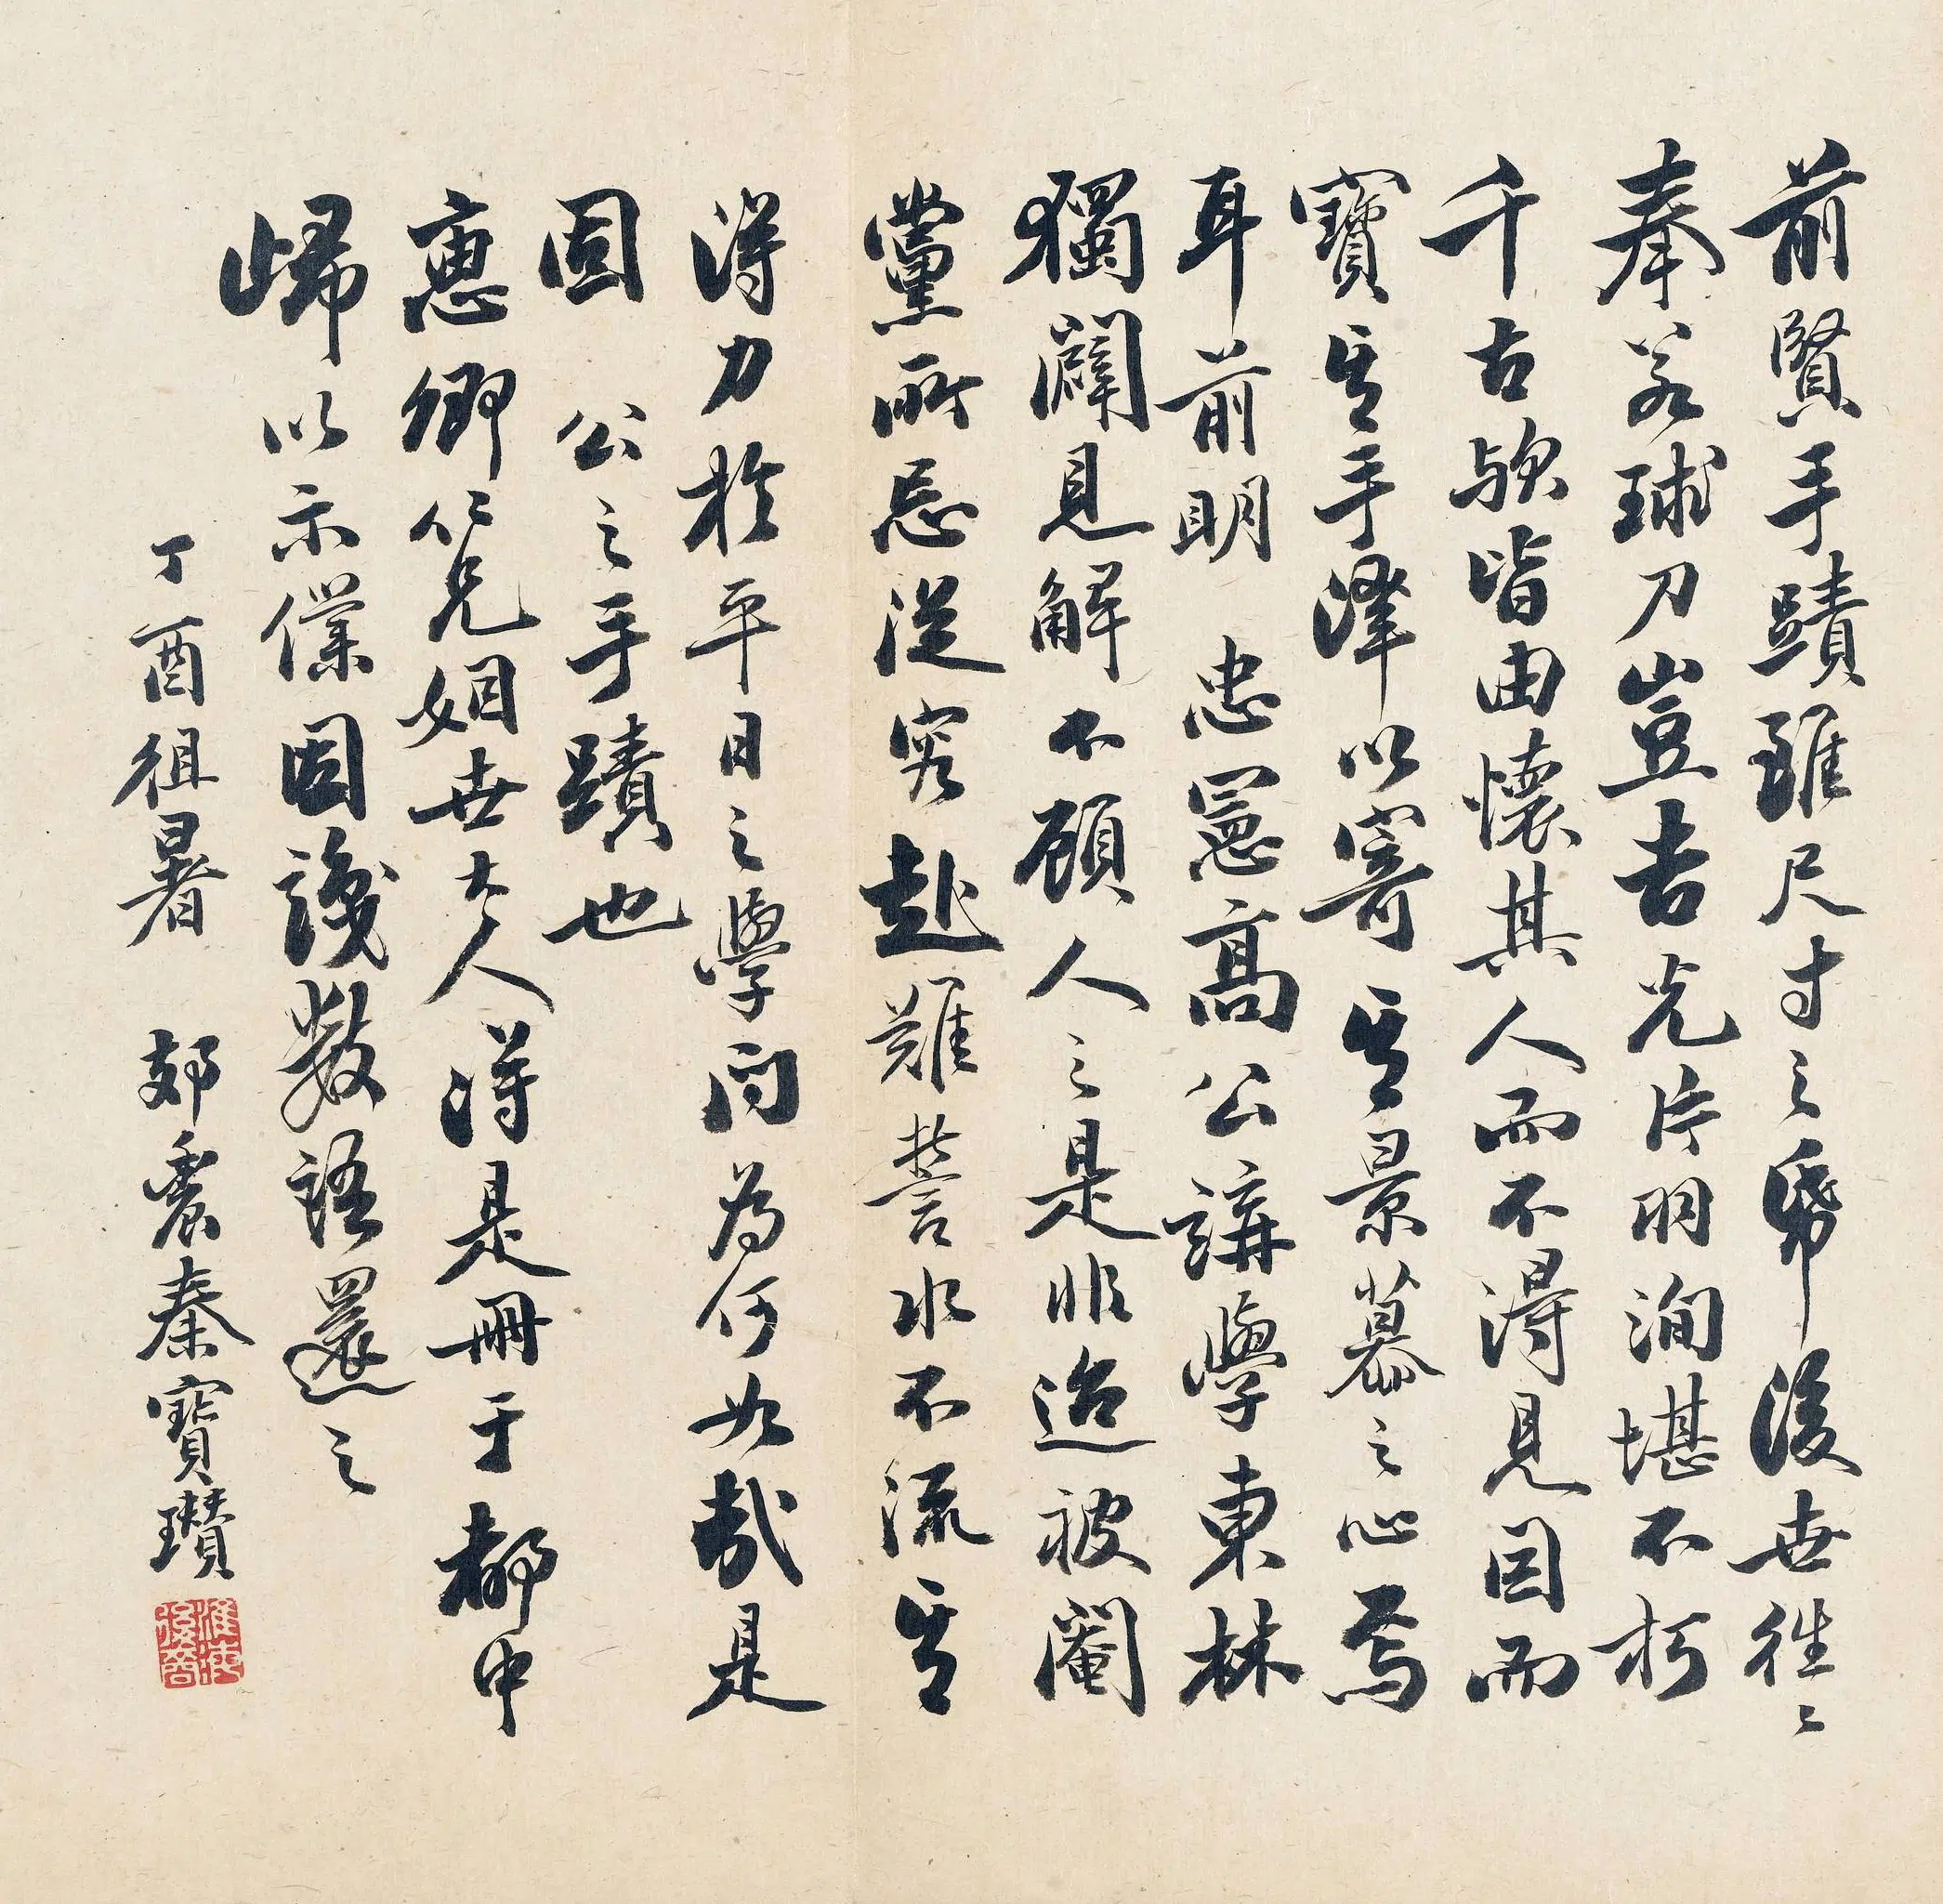 前賢手蹟雖尺寸之帋後世往〻
奉若球刀豈吉光片羽洵堪不朽
千古歟皆由懷其人而不得見因而
寶其手澤以寄其景慕之心焉
耳前明 忠憲高公講學東林
獨闢見解不顧人之是非迨被閹
黨所忌從容赴難誓水不流其
得力於平日之學問為何如哉是
固 公之手蹟也
惠卿仁兄姻世大人得是冊于都中
歸以示僕因識數語還之
丁酉徂暑 郊農秦寶瓚
淮海後裔